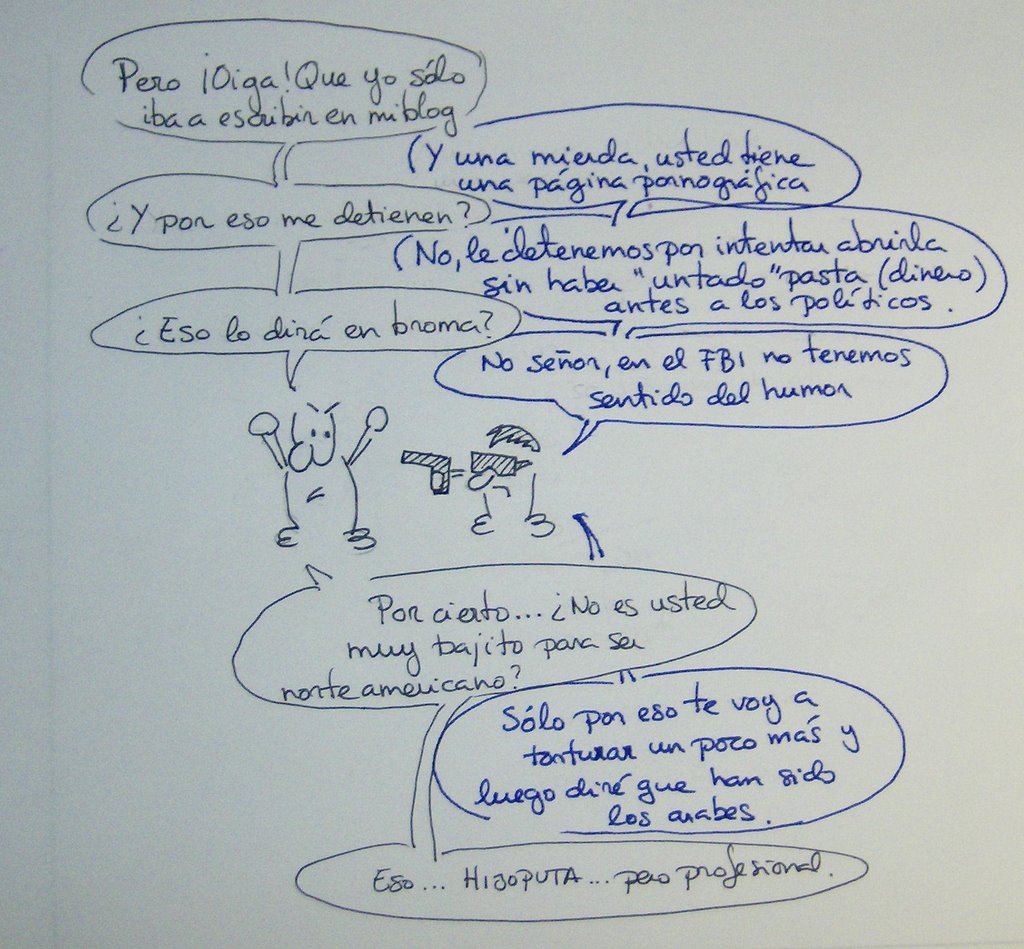 Pero ¡Oiga! Que yo sólo
iba a escribir en mi blog
(Y una mierda, usted tiene
una página pornográfica
¿Y por eso me detienen?
(No, le detenemos por intentar abrirla
sin haber "untado" pasta (dinero)
antes a los políticos.
¿Eso lo dirá en broma?
No señor, en el FBI no tenemos
sentido del humor
Por cierto... ¿No es usted
muy bajito para ser
norteamericano?
Sólo por eso te voy a
torturar un poco más y
luego diré que han sido
los arabes.
Eso... HIJOPUTA... pero profesional.